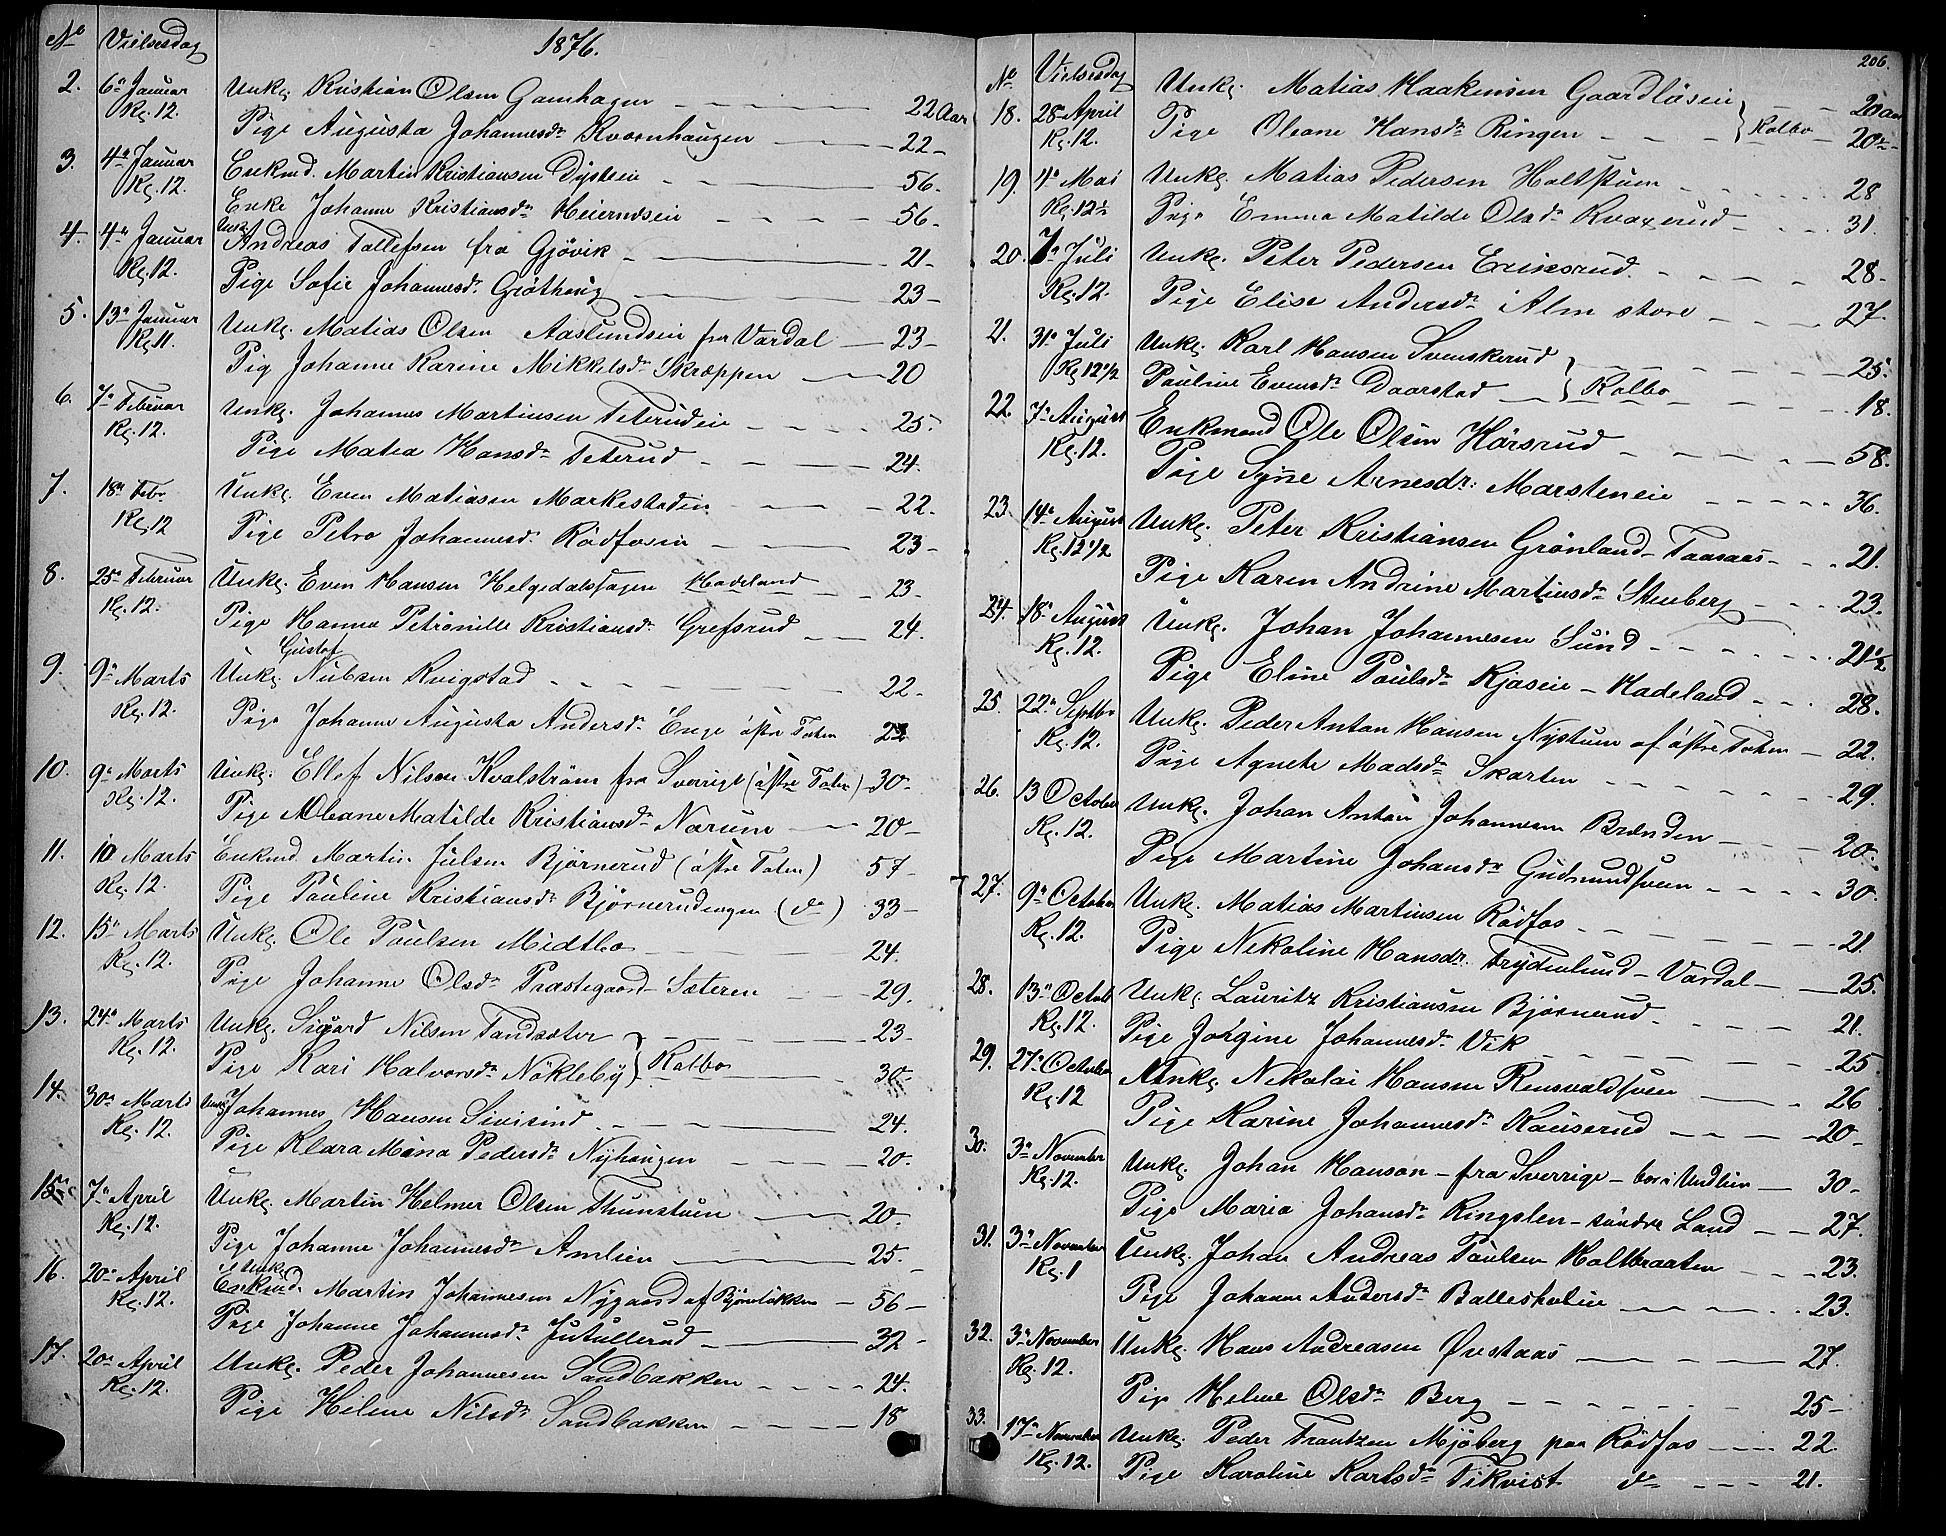 No Vielsesdag 1876.
2. 6te Januar Ungk. Kristian Olsen Gamhagen 22 Aar
Kl. 12. Pige Augusta Johannesdr. Kvoernhaugen 22
3. 4de Januar Enkmd. Martin Kristiansen Dysteeie 56
Kl. 12. Enke Johanne Kristiansdr. 56
4. 4de Januar Ungk. Andreas Tollefsen fra Gjøvik 21
Kl. 12. Pige Sofie Johannesdr. Grøthoug 23
5. 13de Januar Ungk. Matias Olsen Aaslundseie fra Vardal 23
Kl 11. Pig Johanne Karine Mikkelsdr. Skræppen 20
6. 7de Februar Ungk. Johannes Martinsen Teterudeie 25
Kl. 12. Pige Matea Hansdr. Teterud 24
7. 18de Febr. Ungk. Even Matiasen Markestadeie 22
Kl. 12 Pige Petra Johannesdr. Rødfoseie 23
8. 25de Februar Ungk. Even Hansen Helgedalshagen Hadeland 23
Kl. 12. Pige Hanna Petronille Kristiansdr. Grefsrud 24
9. 9de Marts Ungk. Gustaf Nielsen Kvigstad 22
Kl. 12. Pige Johanne Augusta Andersdr. Enge østre Toten
10. 9de Marts Ungk. Ellef Nilsen Kvalstrøm fra Sverrige (østre Toten) 30
Kl. 12. Pige Oleane Matilde Kristiansdr. Narum 20
11. 10 Marts Enkmd. Martin Julsen Bjørnerud (østre Toten) 57
Kl. 12. Pige Pauline Kristiansdr. Bjørnerudengen (do) 33
12. 15de Marts Ungk. Ole Paulsen Midtbo 24
Kl. 12. Pige Johanne Olsdr. Præstegaard-Sæteren 29
13. 24de Marts Ungk. Sigvard Nilsen Tandsæter 23
Kl. 12. Pige Kari Halvorsdr. Nøkleby } Kolbo 30
14. 30de Marts Ungk. Johannes Hansen Sivesind 24
Kl. 12. Pige Klara Mina Pedersdr. Nyhaugen 20
15. 7de April Ungk. Martin Helmer Olsen Thunstuen 20
Kl. 12. Pige Johanne Johannesdr. Amlien 25
16. 20de April Enkmd. Martin Johannesen Nygaard af Bjørnløkken 56
Kl. 12. Pige Johanne Johannesdr. Jutullerud 32
17. 20de April Ungk. Peder Johannesen Sandbakken 24
Kl. 12. Pige Helene Nilsdr. Sandbakken 18
206.
No Vielsesdag
18. 28de April Ungk. Matias Haakensen Gaardløseie 20 aar
Kl. 12. Pige Oleane Hansdr. Ringen } Kolbo 20½
19. 4de Mai Ungk. Matias Pedersen Holtstuen 28
Kl. 12½ Pige Emma Matilde Olsdr. Kvaxerud 31
20. 7de Juli Ungk. Peter Pedersen Eriksrud 28
Kl. 12. Pige Elise Andersdr. Alm store 27
21. 31te Juli Ungk. Karl Hansen Svenskerud 25
Kl 12½ Pauline Evensdr. Daarstad } Kolbo 18
22. 7de August Enkemand Ole Olsen Hørsrud 58
Kl. 12. Pige Syne Arnesdr. Marsteneie 36
23. 14de August Ungk. Peter Kristiansen Grønland-Taasaas 21
Kl. 12½ Pige Karen Andrine Martinsdr. Stenberg 23
24. 18de August Ungk. Johan Johannesen Sund 21½
Kl. 12. Pige Eline Paulsdr. Kjoseie - Hadeland 28
25 22de Septbr Ungk. Peder Anton Hansen Nystuen af østre Toten 22
Kl. 12. Pige Agnete Madsdr. Skarten 29
26. 13 October Ungk. Johan Anton Johannesen Brænden 20
Kl. 12. Pige Martine Johansdr. Gudmundsveen 30
27. 9de October Ungk. Matias Martinsen Rødfos 21
Kl. 12. Pige Nekoline Hansdr. Frydenlund - Vardal 25
28. 13de Octob Ungk. Lauritz Kristiansen Bjørnerud 21
Kl. 12. Pige Jorgine Johannesdr. Vik 25
29. 27de October Ungk. Nekolai Hansen Rensvoldsveen 26
Kl. 12 Pige Karine Johannesdr. Kauserud 20
30. 3de November Ungk. Johan Hanson - fra Sverrige - bor i Undlien 30
Kl. 12. Pige Maria Johansdr. Ringelien - søndre Land 27
31. 3de November Ungk. Johan Andreas Paulsen Holtbraaten 23
Kl. 1 Pige Johanne Andersdr. Balleshuleie 23
32. 3de November Ungk. Hans Andreasen Øvstaas 27
Kl. 12. Pige Helene Olsdr. Berg 25
33. 17de November Ungk. Peder Frantzen Mjøberg paa Rødfos 22
Kl. 12. Pige Karoline Karlsdr. Tikvist do 21